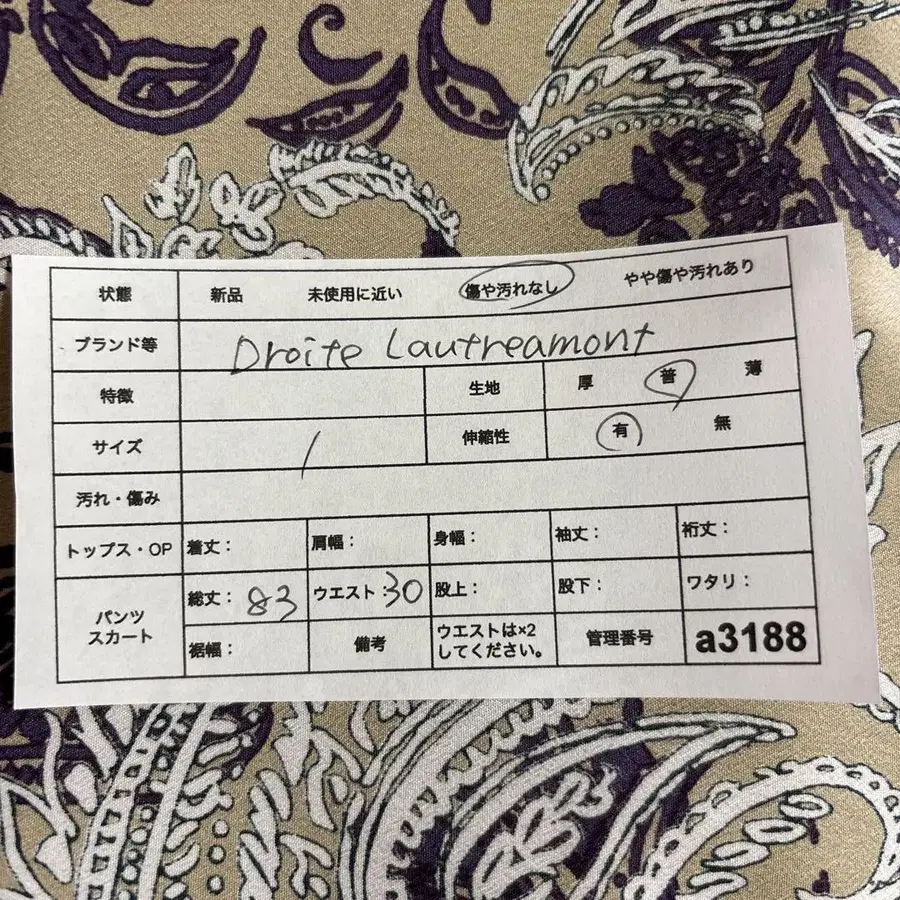 状態 新品 未使用に近い 傷や汚れなし やや傷や汚れあり
ブランド等 Droite Lautreamont
特徴 生地 厚 普 薄
サイズ 1 伸縮性 有 無
汚れ・傷み
トップス・OP 着丈： 肩幅： 身幅： 袖丈： 裄丈：
パンツ スカート 総丈：83 ウエスト：30 股上： 股下： ワタリ：
裾幅： 備考 ウエストは×2 してください。 管理番号 a3188